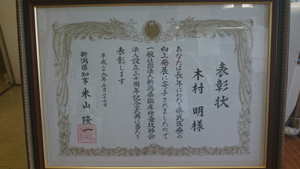 表彰状
木村 明様
あなたは長年にわたり県民医療の
向上発展に寄与されましたので
一般社団法人新潟県臨床検査技師会
法人設立三十周年記念式典に当たり
表彰します
平成二十九年
新潟県知事 米山 隆一